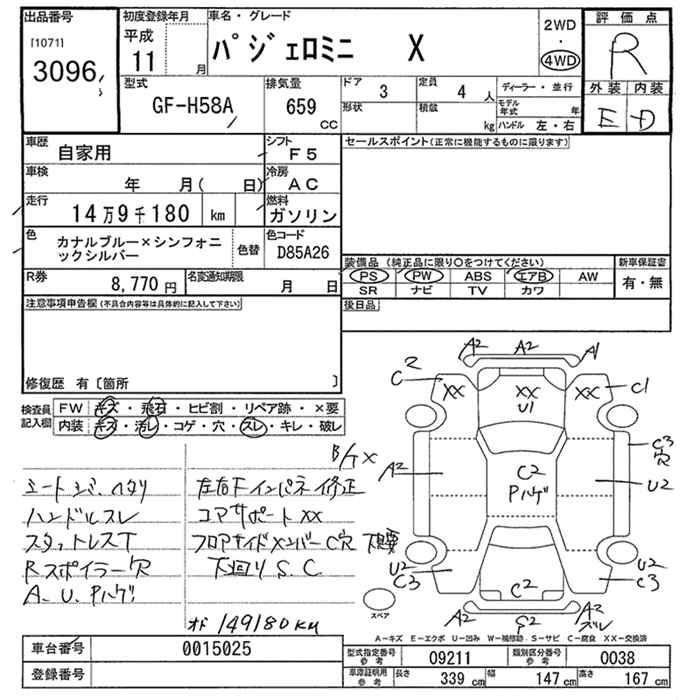 出品番号
[1071]
3096
初度登録年月
平成
11
月
車名・グレード
パジェロミニ X
2WD
・
4WD
評価点
R
外装 内装
E D
型式
GF-H58A
排気量
659
CC
ドア
3
形状
定員
4 人
積載
kg
ディーラー・並行
モデル年式 年
ハンドル 左・右
車歴
自家用
シフト
F5
車検
年 月( 日)
冷房
AC
走行
14万9千180 km
燃料
ガソリン
色
カナルブルー×シンフォニ
ックシルバー
色替
色コード
D85A26
R券
8,770 円
名変通知期限
月 日
セールスポイント(正常に機能するものに限ります)
装備品 (純正品に限り○をつけてください)
PS PW ABS エアB AW
SR ナビ TV カワ
新車保証書
有・無
後日品
注意事項申告欄(不具合内容等は具体的に記入して下さい)
修復歴 有〔箇所 〕
検査員
記入欄
FW キズ・飛石・ヒビ割・リペア跡・×要
内装 キズ・汚レ・コゲ・穴・スレ・キレ・破レ
シートシミ、ヘタリ
ハンドルスレ
スタットレスT
Rスポイラー穴
A、U、Pハゲ
左右Fインパネ修正
コアサポートXX
フロアサイドメンバーC穴
下廻りS、C
オド149180KM
A2 A2 A1
C2 XX XX XX C1
U1
A2
C2
Pハゲ
C3
穴
U2
U2
C3
C2
C3
A2 A2
スペア
A-キズ E-エクボ U-凹み W-補修跡 S-サビ C-腐食 XX-交換済
車台番号
0015025
登録番号
型式指定番号
参考
09211
類別区分番号
参考
0038
車庫証明用
参考
長さ
339 cm
幅
147 cm
高さ
167 cm